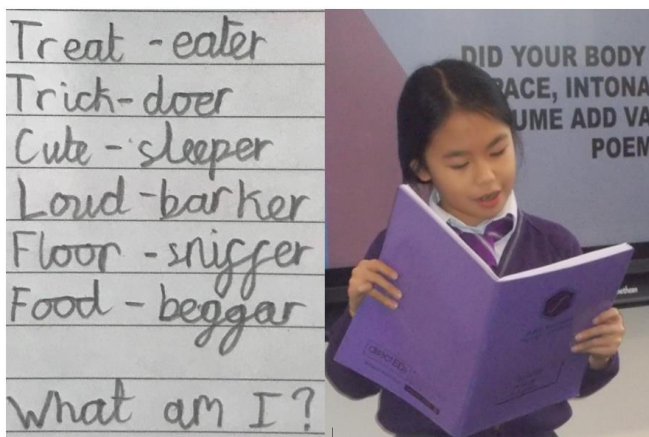 Treat - eater
Trick - doer
Cute - sleeper
Loud - barker
Floor - sniffer
Food - beggar
What am I?
DID YOUR BODY
PACE, INTONA
UME ADD VA
POEM